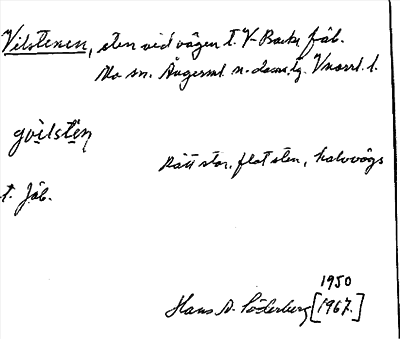 Vilstenen, sten vid vägen t. V-Backe fäb.
Mo sn. Ångerml. n. doms. tg. Vnorrl. l.
gvilstēn
Rätt stor, flat sten, halvvägs
t. fäb.
1950
Hans A. Söderberg [1967.]